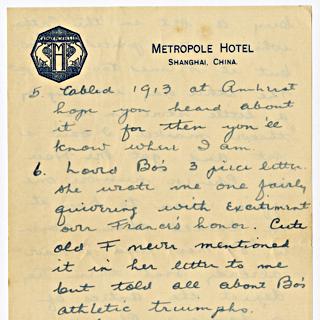 M
METROPOLE HOTEL
SHANGHAI, CHINA.
5. Cabled 1913 at Amherst
hope you heard about
it – for then you'll
know where I am.
6. Loved Bo's 3 piece letter.
She wrote me one fairly
quivering with excitement
over Francis's honor. Cute
old F never mentioned
it in her letter to me
but told all about Bo's
athletic triumphs.